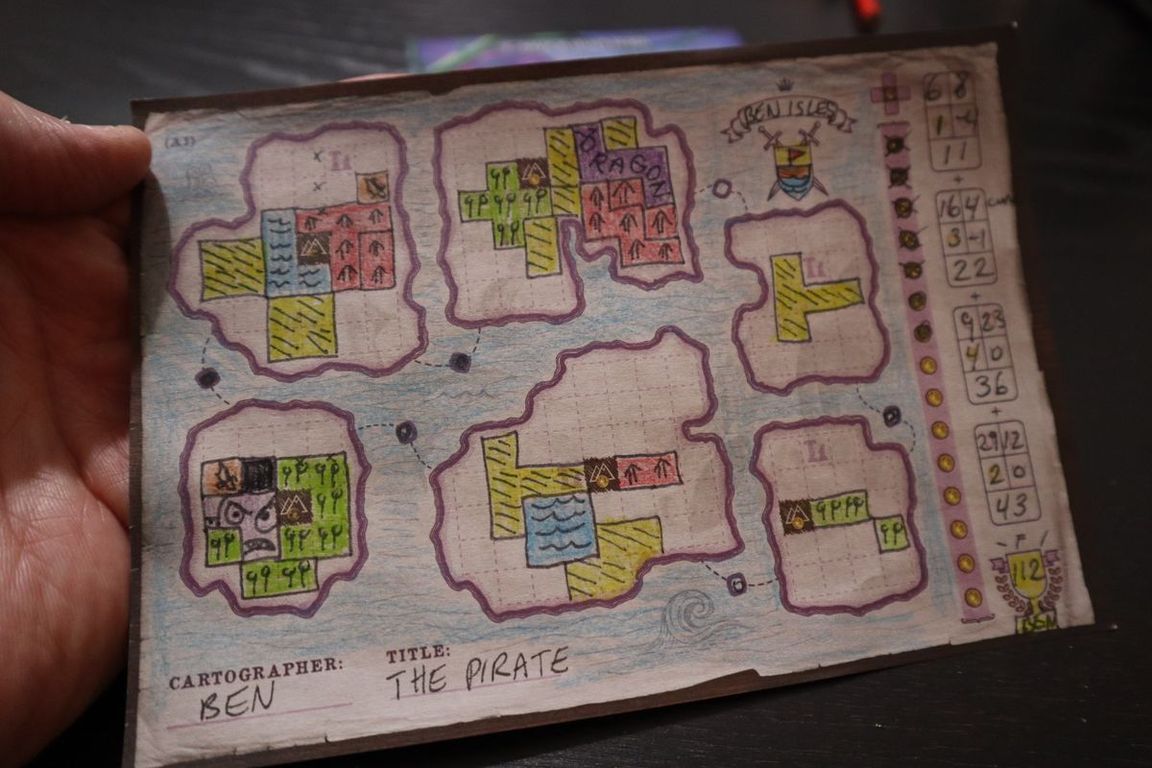 (A3)
BEN ISLES
DRAGON
6 8
1
11
+
16 4
3 -1
22
+
9 23
4 0
36
+
29 12
2 0
43
112
BEN
CARTOGRAPHER:
BEN
TITLE:
THE PIRATE